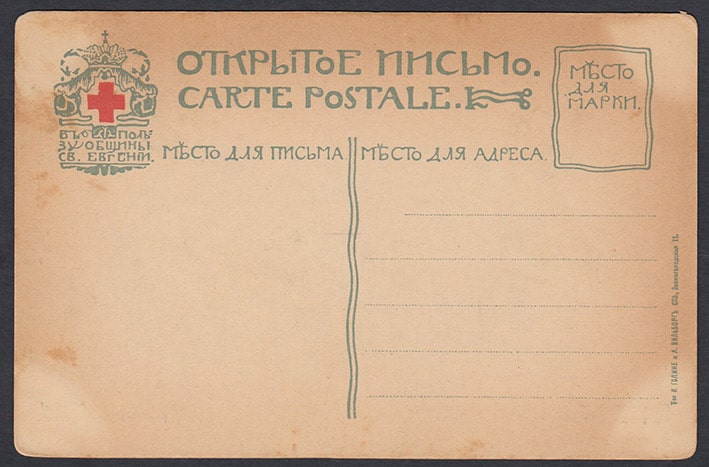 ОТКРЫТОЕ ПИСЬМО.
CARTE POSTALE.
МѢСТО
ДЛЯ
МАРКИ.
ВЪ ПОЛЬ
ЗУ ОБЩИНЫ
СВ. ЕВГЕНІИ.
МѢСТО ДЛЯ ПИСЬМА
МѢСТО ДЛЯ АДРЕСА.
Р. ГОЛИКЕ и А. ВИЛЬБОРГЪ. СПБ, Звенигородская 11.